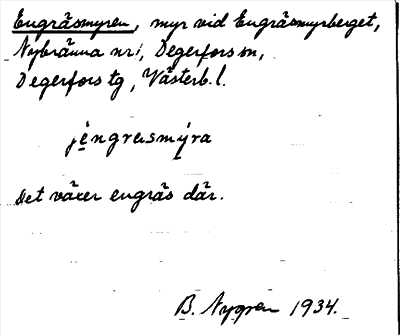 Engräsmyren, myr vid Engräsmyrberget,
Nybränna nr 1, Degerfors sn,
Degerfors tg, Västerb. l.
jéngrasmýra
Det växer engräs där.
B. Nygren 1934.